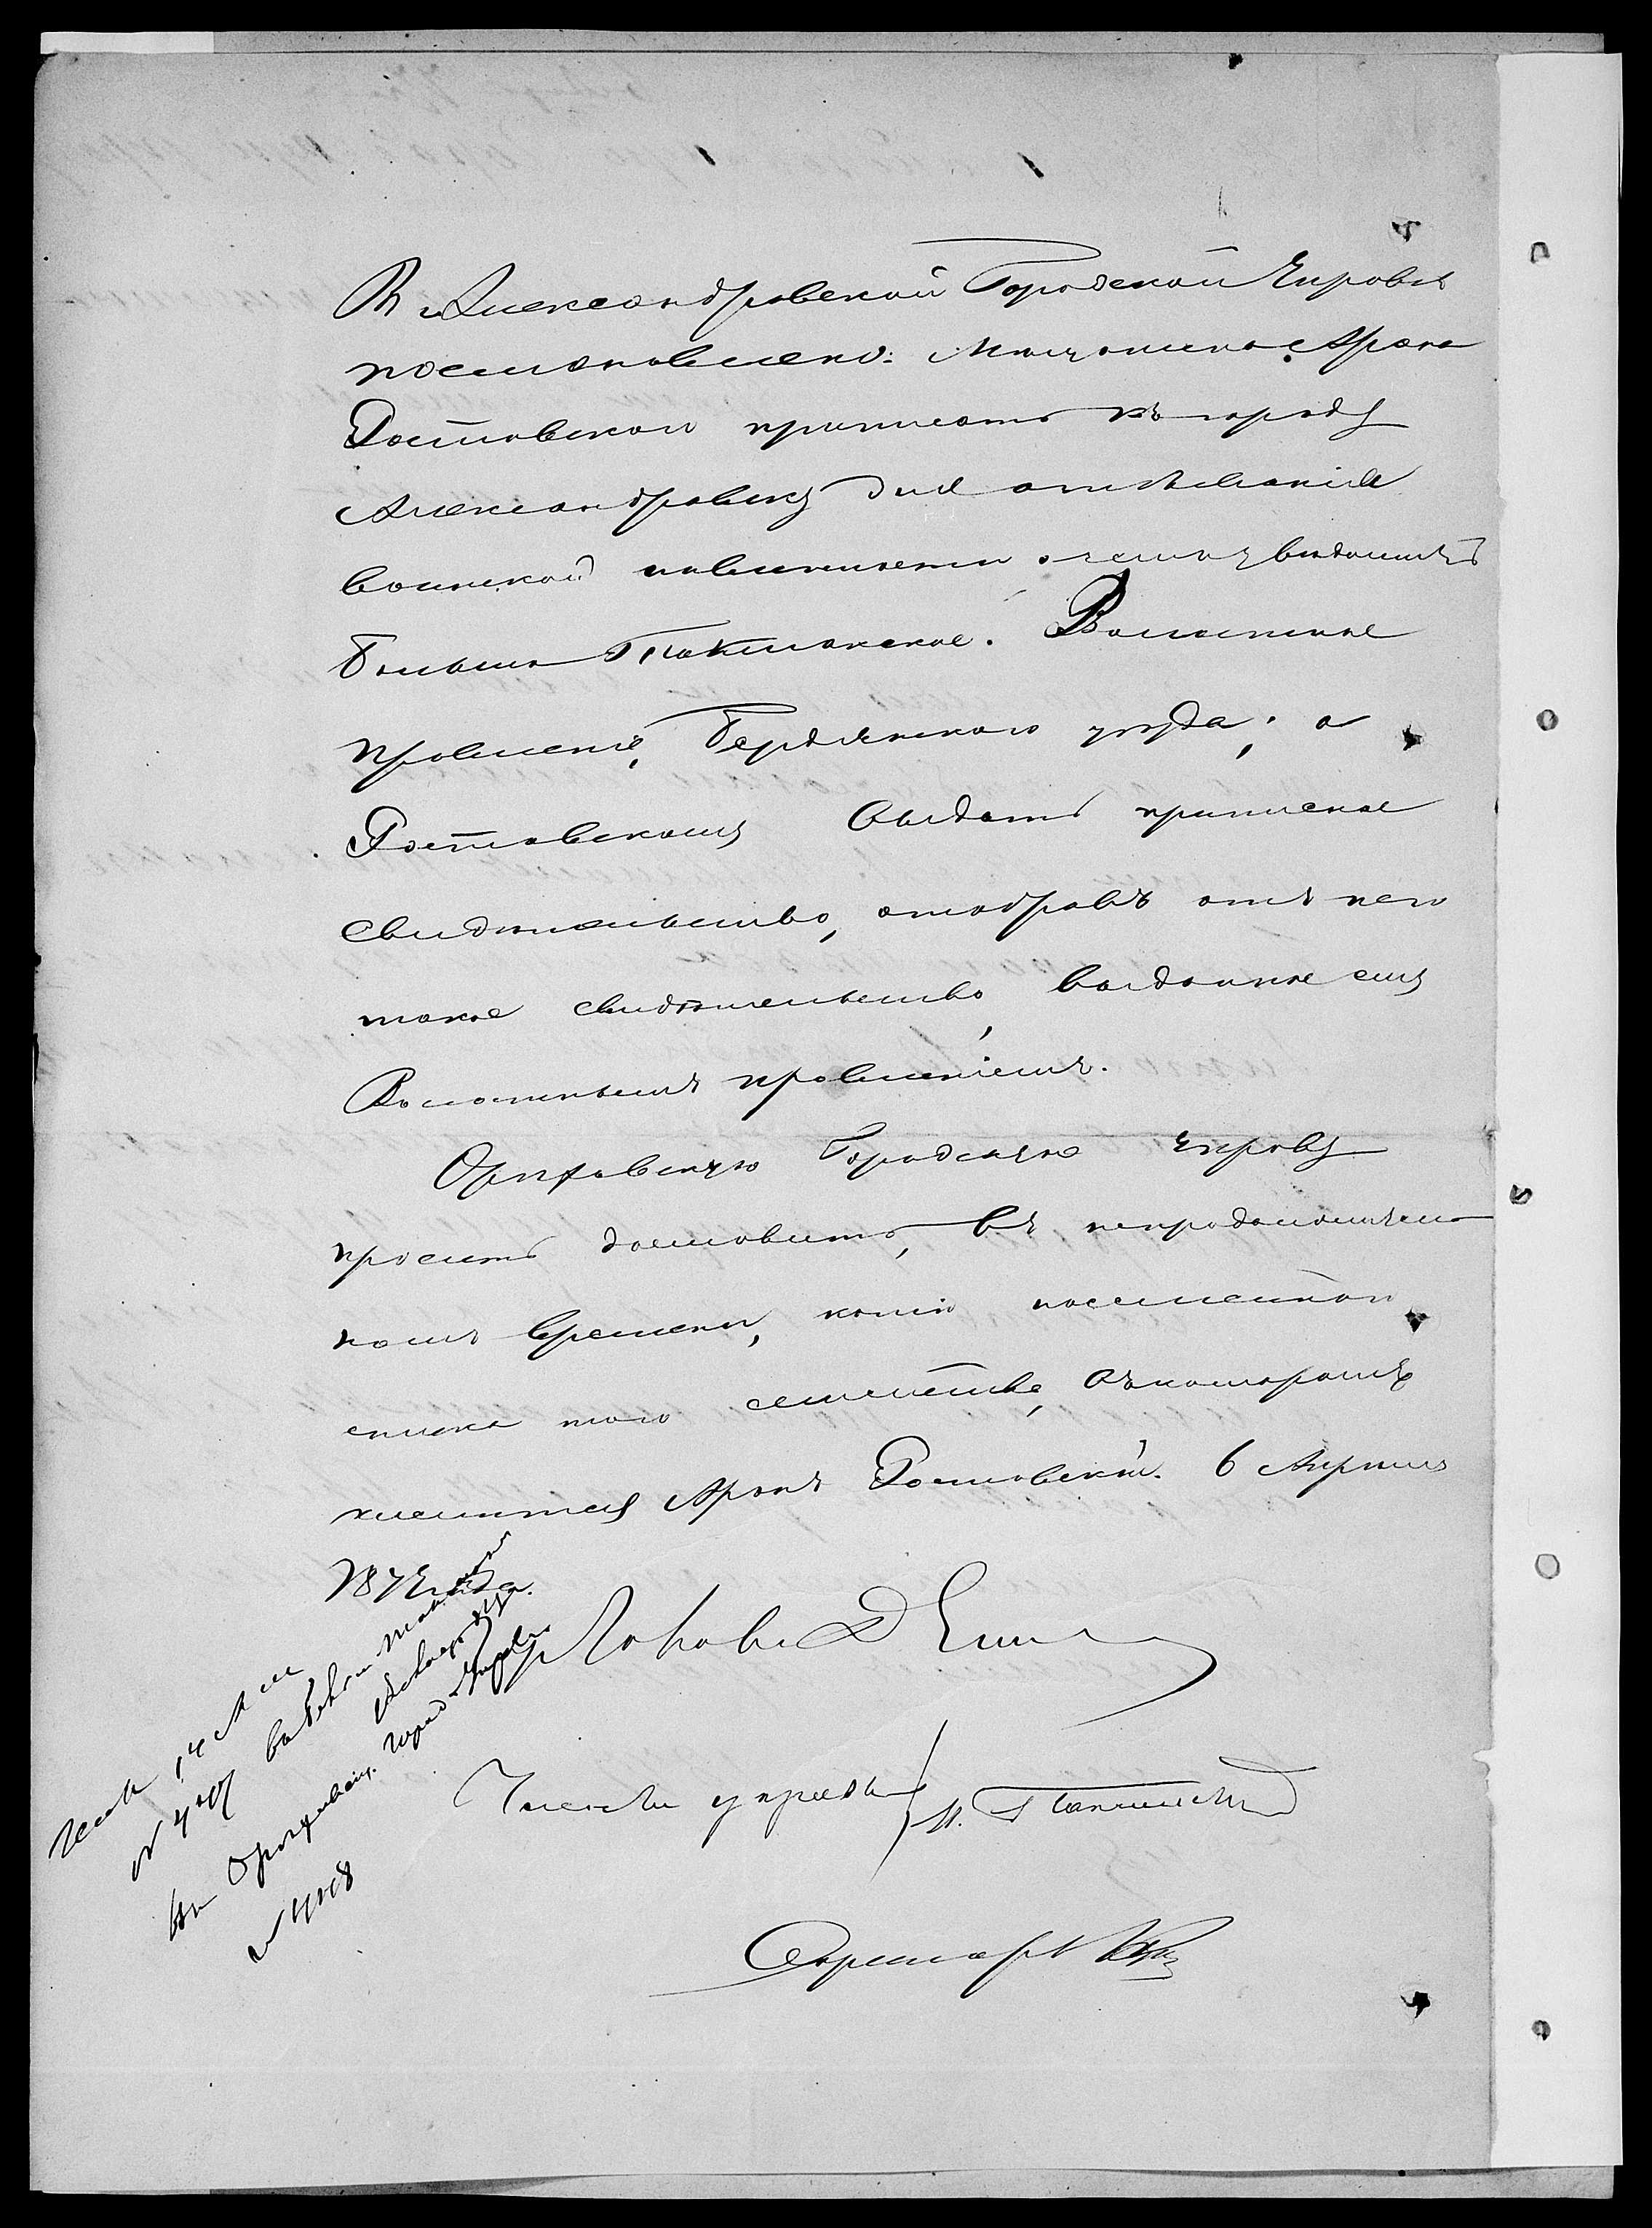 В Александровской Городской Управѣ
постановлено: Мѣщанина Арона
Ростовскаго приписать къ городу
Александровску для отбыванія
воинской повинности о чемъ увѣдомить
Больше Токмакское. Волостное
правленіе, Бердянского уѣзда; а
Ростовскому выдать приписное
свидѣтельство, отобравъ отъ него
такое свидѣтельство, выданное ему
Волостнымъ правленіемъ.
Орѣховскую Городскую Управу
просить доставить, въ непродолжитель
номъ времени, копію посемейнаго
списка того семейства, въ которомъ
числится Аронъ Ростовскій. 6 Апрѣля
187 года.
Голова Д
Члены управы И.
Секретарь
14 Апр
№
въ Орѣховскую город. Управу
№